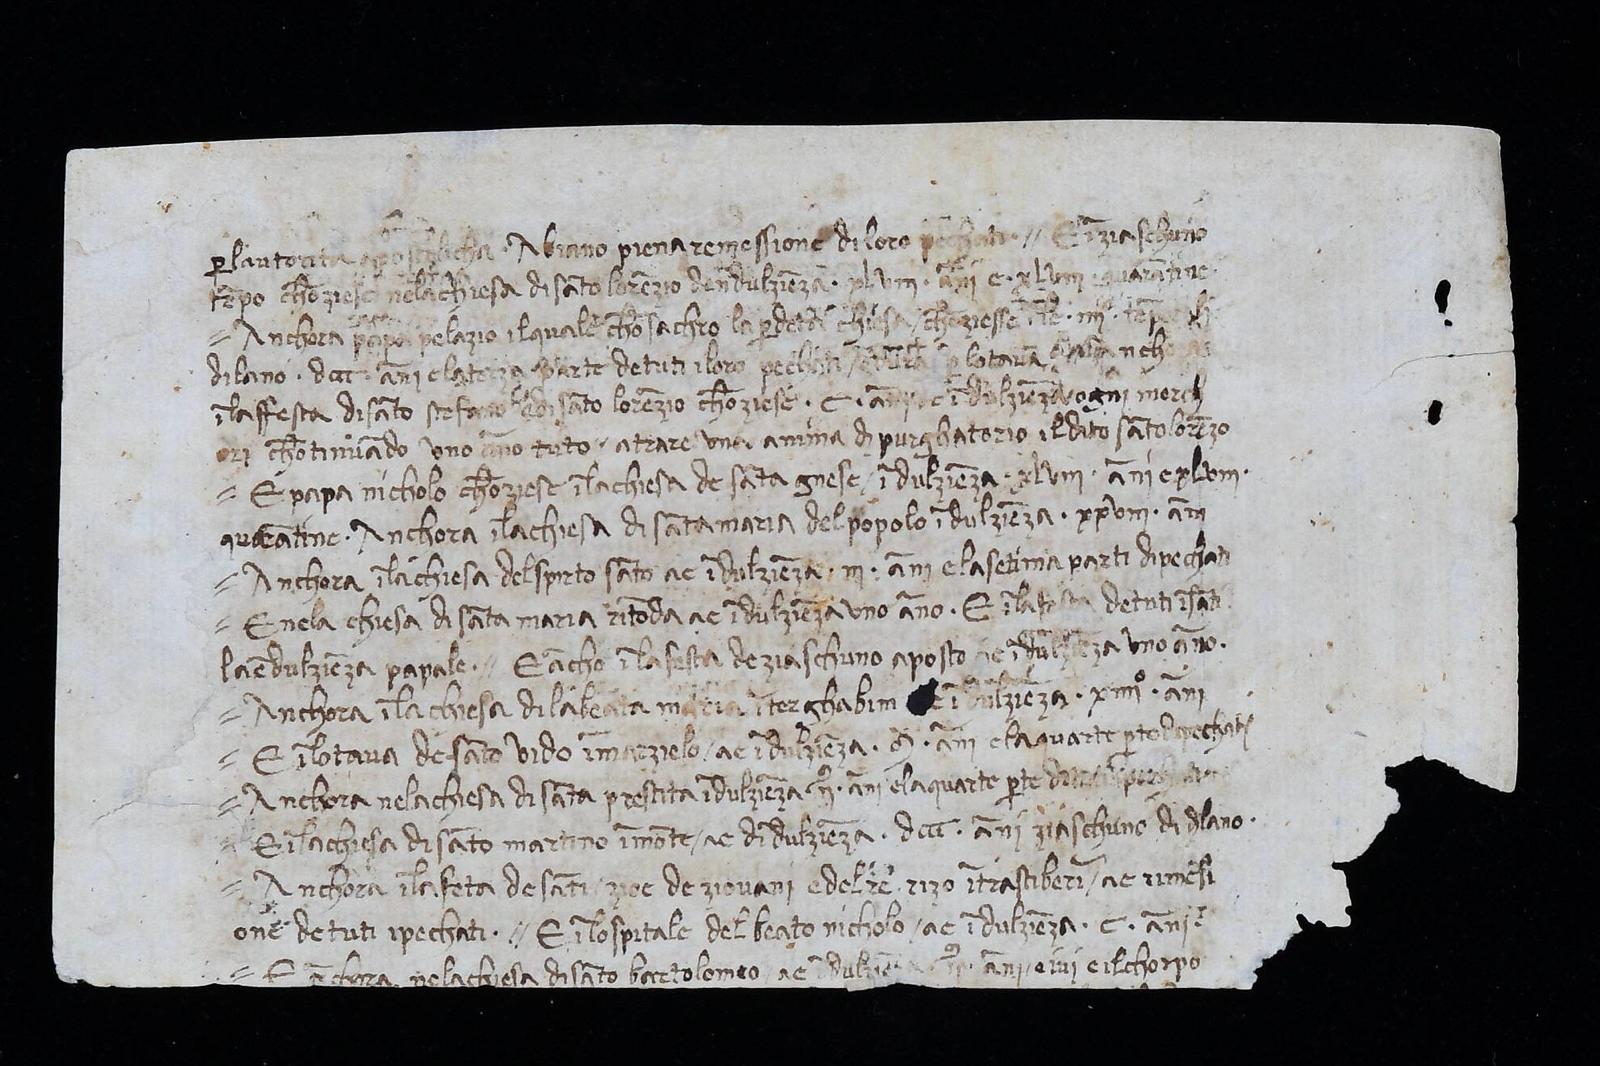 ꝑ lautorita apostolicha · Abiano piena remessione di loro pechati · // E ī ziaschuno
tēpo chōziese nela chiesa di sāto lorēzio de īdulziēza · xlviii · āni e · xlviii · quarātine ·
= Anchora papa pelazio il quale chōsachro la p̄deta chiesa / chōziesse
di lano · dccc · āni e la terza parte de tuti i loro pechati / p̄ lotava
ī la ffesta di sāto stefano e di sāto lorēzio chōziese · c · āni de ī dulziēza e ogni merch
ori chōtinuādo uno āno tuto / a trare una anima di purghatorio il dito sāto lorēzo
= E papa nicholo chōziese ī la chiesa de sāta gnese / ī dulziēza · xlviii · āni e xlviii ·
quarātine · Anchora ī la chiesa di sāta maria del popolo ī dulziēza · xxviii · āni
= Anchora ī la chiesa del spirto sāto ae ī dulziēza · iii · āni e la setima parti di pechati
= E nela chiesa di sāta maria ritōda ae ī dulziēza uno āno · E ī la festa de tuti i sāti
la ē dulziēza papale · // E ācho ī la festa de ziaschuno aposto ae ī dulziēza uno āno ·
= Anchora ī la chiesa di la beata maria ī terghabim ae ī dulziēza · xiiiiº · āni
= E ī lotava de sāto vido ī marzielo / ae ī dulziēza · āni e la quarte ꝑte de pechati
= Anchora nela chiesa di sāta prestita ī dulziēza āni e la quarte ꝑte
= E ī la chiesa di sāto martino ī mōte / ae di ī dulziēza · dccc · āni ziaschuno di dlano ·
= Anchora ī la feta de sāti / zioe de ziovani e del re rizo ī trastiberī / ae rimesi
one de tuti i pechati · // E ī lospitale del beato nicholo / ae ī dulziēza · c · āni ·
= E āchora nela chiesa di sāto bartolomeo / ae ī dulziēza āni / e ivi e il chorpo